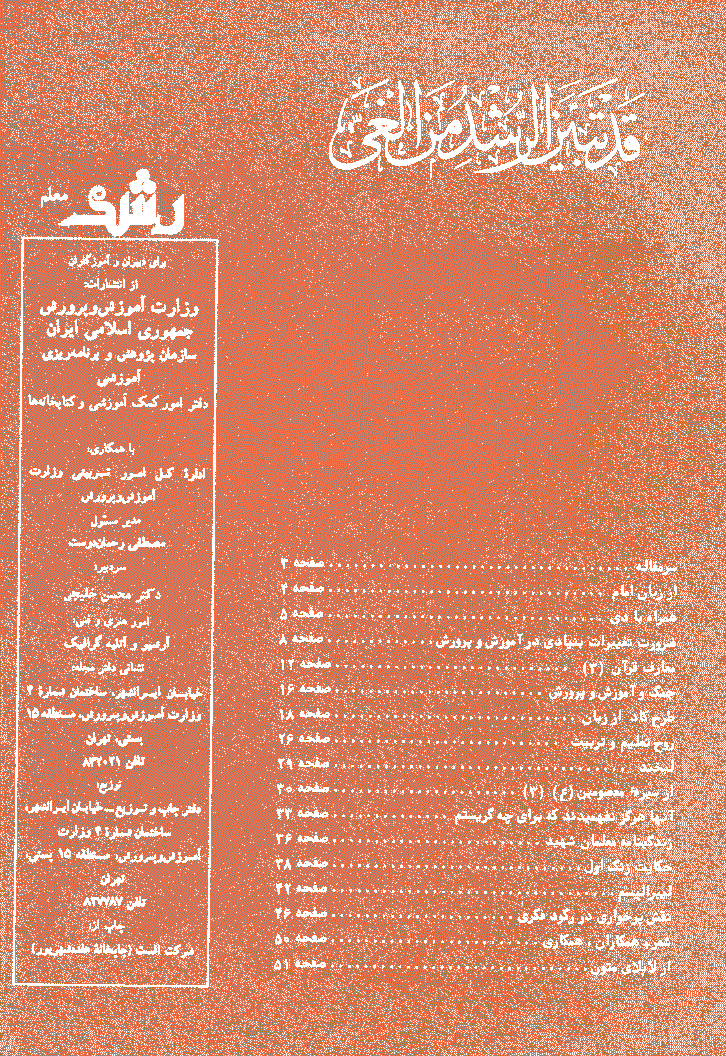 قد تبین الرشد من الغی
رشد معلم
برای دبیران و آموزگاران
از انتشارات:
وزارت آموزش‌وپرورش
جمهوری اسلامی ایران
سازمان پژوهش و برنامه‌ریزی
آموزشی
دفتر امور کمک آموزشی و کتابخانه‌ها
با همکاری:
ادارهٔ کل امور تربیتی وزارت
آموزش‌وپرورش
مدیر مسئول
مصطفی رحماندوست
سردبیر:
دکتر محسن خلیجی
امور هنری و فنی:
آرمیو و آتلیه گرافیک
نشانی دفتر مجله:
خیابان ایرانشهر، ساختمان شمارهٔ ۴
وزارت آموزش‌وپرورش، منطقه ۱۵
پستی، تهران
تلفن ۸۳۲۰۲۱
توزیع:
دفتر چاپ و توزیع ـ خیابان ایرانشهر،
ساختمان شمارهٔ ۴ وزارت
آموزش‌وپرورش، منطقه ۱۵ پستی،
تهران
تلفن ۸۳۹۷۸۷
چاپ از:
شرکت افست
سرمقاله . . . . . صفحه ۳
از زبان امام . . . . . صفحه ۴
همراه با دی . . . . . صفحه ۵
ضرورت تغییرات بنیادی در آموزش و پرورش . . . . . صفحه ۸
معارف قرآن (۲) . . . . . صفحه ۱۲
جنگ و آموزش و پرورش . . . . . صفحه ۱۶
طرح کاد از زبان . . . . . صفحه ۱۸
روح تعلیم و تربیت . . . . . صفحه ۲۶
لبخند . . . . . صفحه ۲۹
از سیرهٔ معصومین (ع) (۲) . . . . . صفحه ۳۰
آنها هرگز نفهمیدند که برای چه گریستم . . . . . صفحه ۳۲
زندگینامه معلمان شهید . . . . . صفحه ۳۶
حکایت زنگ اول . . . . . صفحه ۳۸
لیبرالیسم . . . . . صفحه ۴۲
نقش پرخواری در رکود فکری . . . . . صفحه ۴۶
شعر، همکاران، همکاری . . . . . صفحه ۵۰
از لابلای متون . . . . . صفحه ۵۱